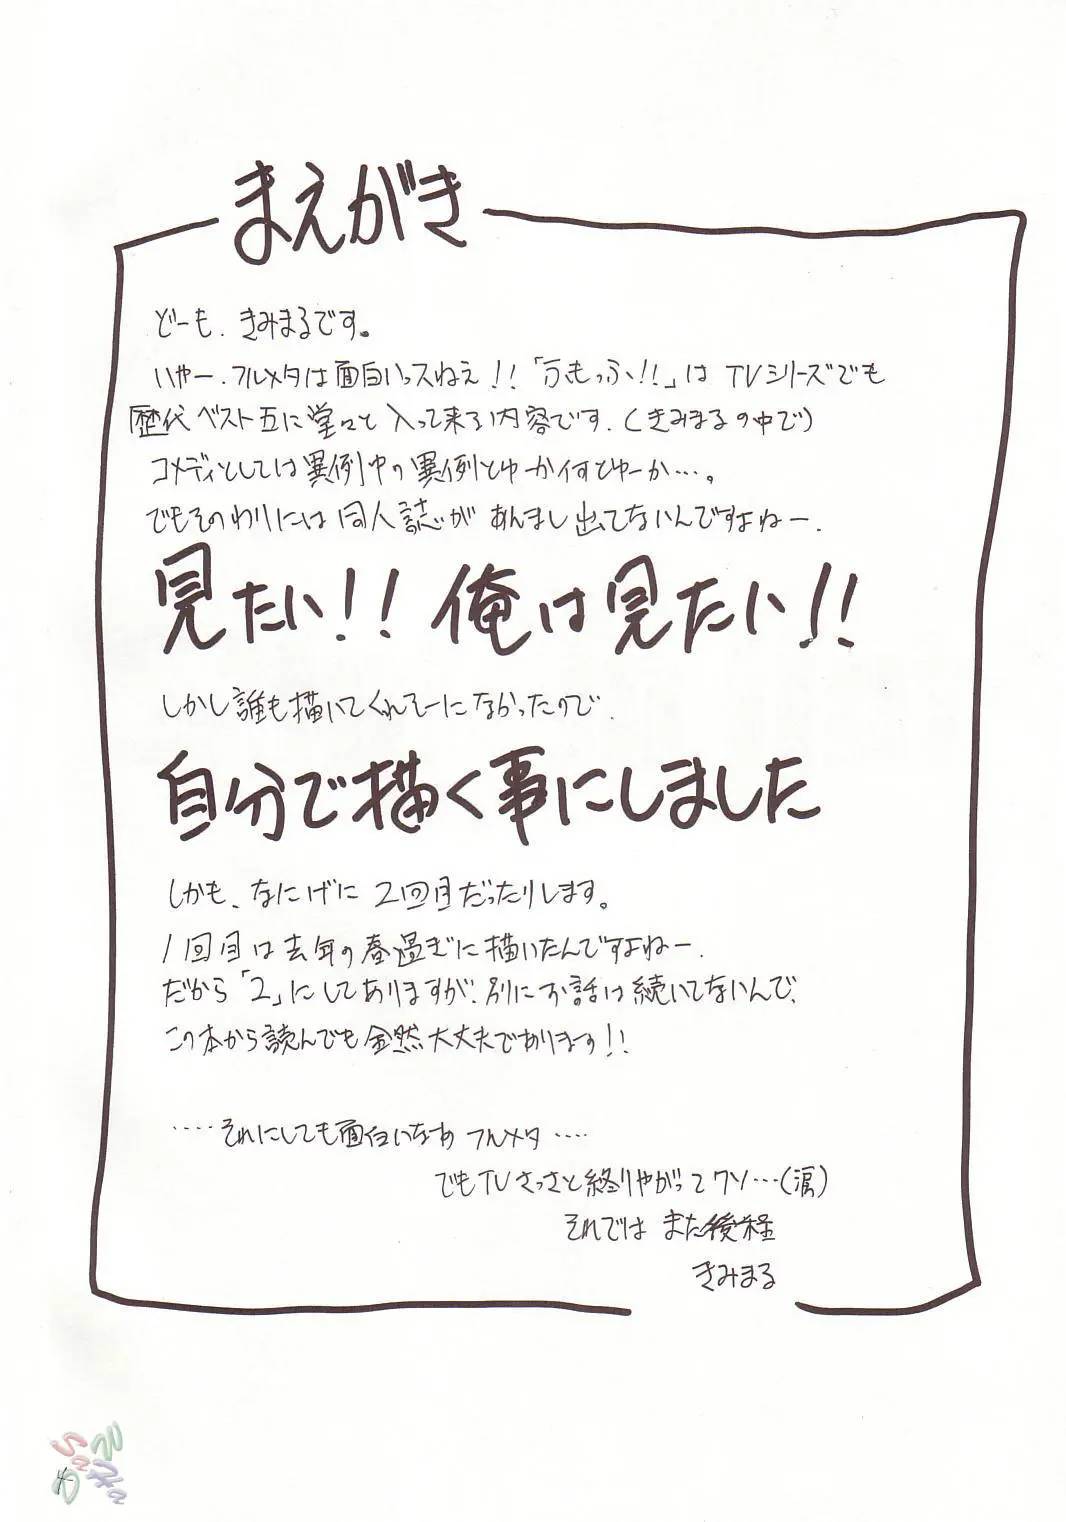 まえがき
どーも、きみまるです。
いやー、フルメタは面白いっスねえ!!「ふもっふ!!」は TVシリーズでも
歴代ベスト五に堂々と入って来る内容です、(きみまるの中で)
コメディとしては異例中の異例とゆーか何とゆーか…。
でもそのわりには同人誌があんまし出てないんですよねー、
見たい!! 俺は見たい!!
しかし誰も描いてくれそーになかったので、
自分で描く事にしました
しかも、なにげに2回目だったりします。
1回目は去年の春過ぎに描いたんですよねー、
だから「2」にしてありますが、別にお話は続いてないんで、
この本から読んでも全然大丈夫であります!!
‥‥それにしても面白いなあ フルメタ‥‥
でもTVさっさと終りやがってクソ…(涙)
それでは また後程
きみまる
4